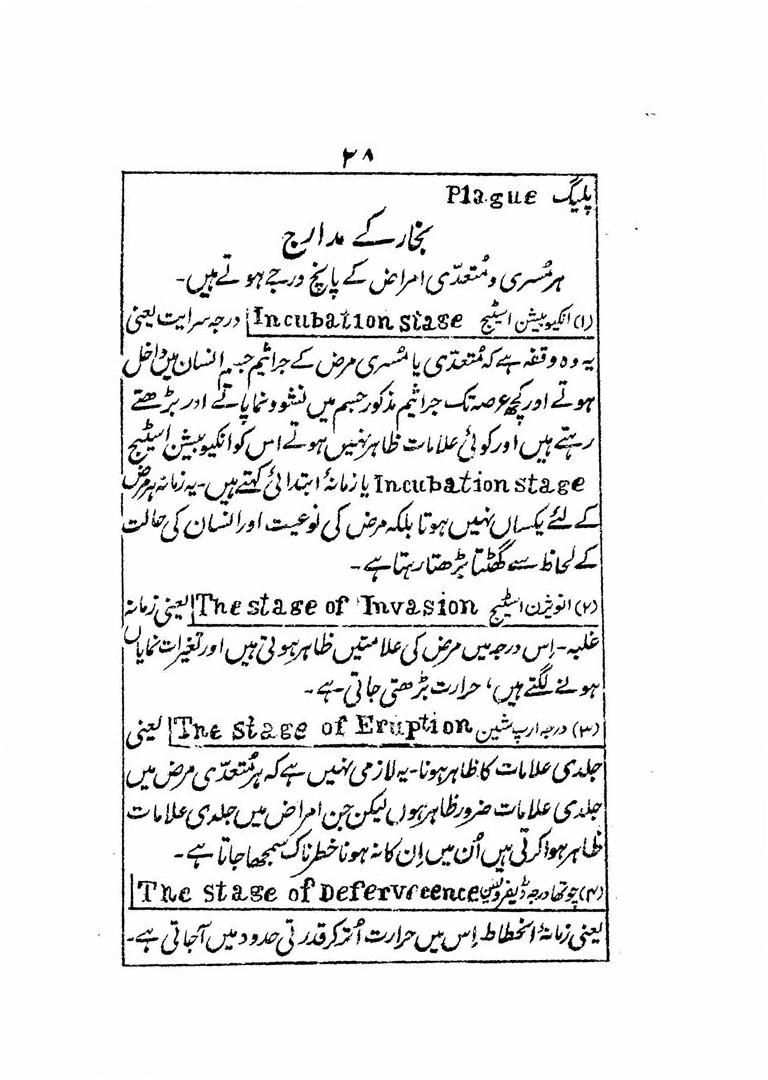 ۲۸
پلیگ Plague
بخار کے مدارج
ہر مُسری و مُتعدّی امراض کے پانچ درجے ہوتے ہیں۔
(۱) انکیوبیشن اسٹیج Incubation stage درجہ سرایت یعنی
یہ وہ وقفہ ہے کہ مُتعدّی یا مُسری مرض کے جراثیم جسم انسان میں داخل
ہوتے اور کچھ عرصہ تک جراثیم مذکور جسم میں نشوونما پاتے اور بڑھتے
رہتے ہیں اور کوئی علامات ظاہر نہیں ہوتے اس کو انکیوبیشن اسٹیج
Incubation stage یا زمانۂ ابتدائی کہتے ہیں۔ یہ زمانہ ہر مرض
کے لئے یکساں نہیں ہوتا بلکہ مرض کی نوعیت اور انسان کی حالت
کے لحاظ سے گھٹتا بڑھتا رہتا ہے۔
(۲) انویژن اسٹیج The stage of Invasion یعنی زمانۂ
غلبہ۔ اِس درجہ میں مرض کی علامتیں ظاہر ہوتی ہیں اور تغیرات نمایاں
ہونے لگتے ہیں، حرارت بڑھتی جاتی ہے۔
(۳) درجہ ارپ شین The stage of Eruption یعنی
جلدی علامات کا ظاہر ہونا۔ یہ لازمی نہیں ہے کہ ہر مُتعدّی مرض میں
جلدی علامات ضرور ظاہر ہوں لیکن جن امراض میں جلدی علامات
ظاہر ہوا کرتی ہیں اُن میں اِن کا نہ ہونا خطرناک سمجھا جاتا ہے۔
(۴) چوتھا درجہ ڈیفرویسن The stage of Deferveeence
یعنی زمانۂ انحطاط اِس میں حرارت اُتر کر قدرتی حدود میں آجاتی ہے۔